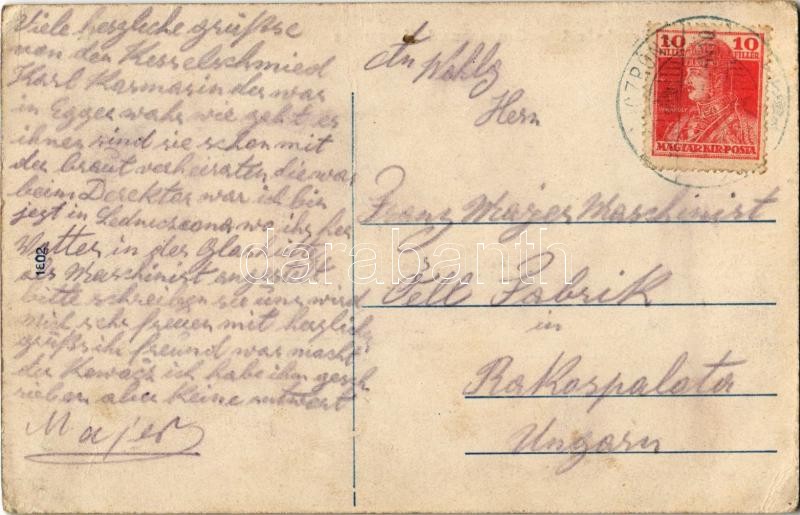 Viele herzliche grüßse
von den Kesselschmied
Karl Karmasin der war
in Egger wahr wie geht es
ihnen sind sie schon mit
der braut verheiraten die war
beim Derekter war ich bin
jezt in Lednicrona wo ihr her
Vatter in der Glasfabrik
als Maschinist
bitte schreiben sie uns wird
mich sehr freuen mit herzlich
grüßs ihr freund was macht
der Kovacs ich habe ihm gesch
rieben aba keine antwort
Majer
1802
An Wollg
Hern
Franz Majer Maschinist
Öell Fabrik
in
Rakospalota
Ungarn
10 10
FILLER FILLER
MAGYAR KIR. POSTA
darabanth